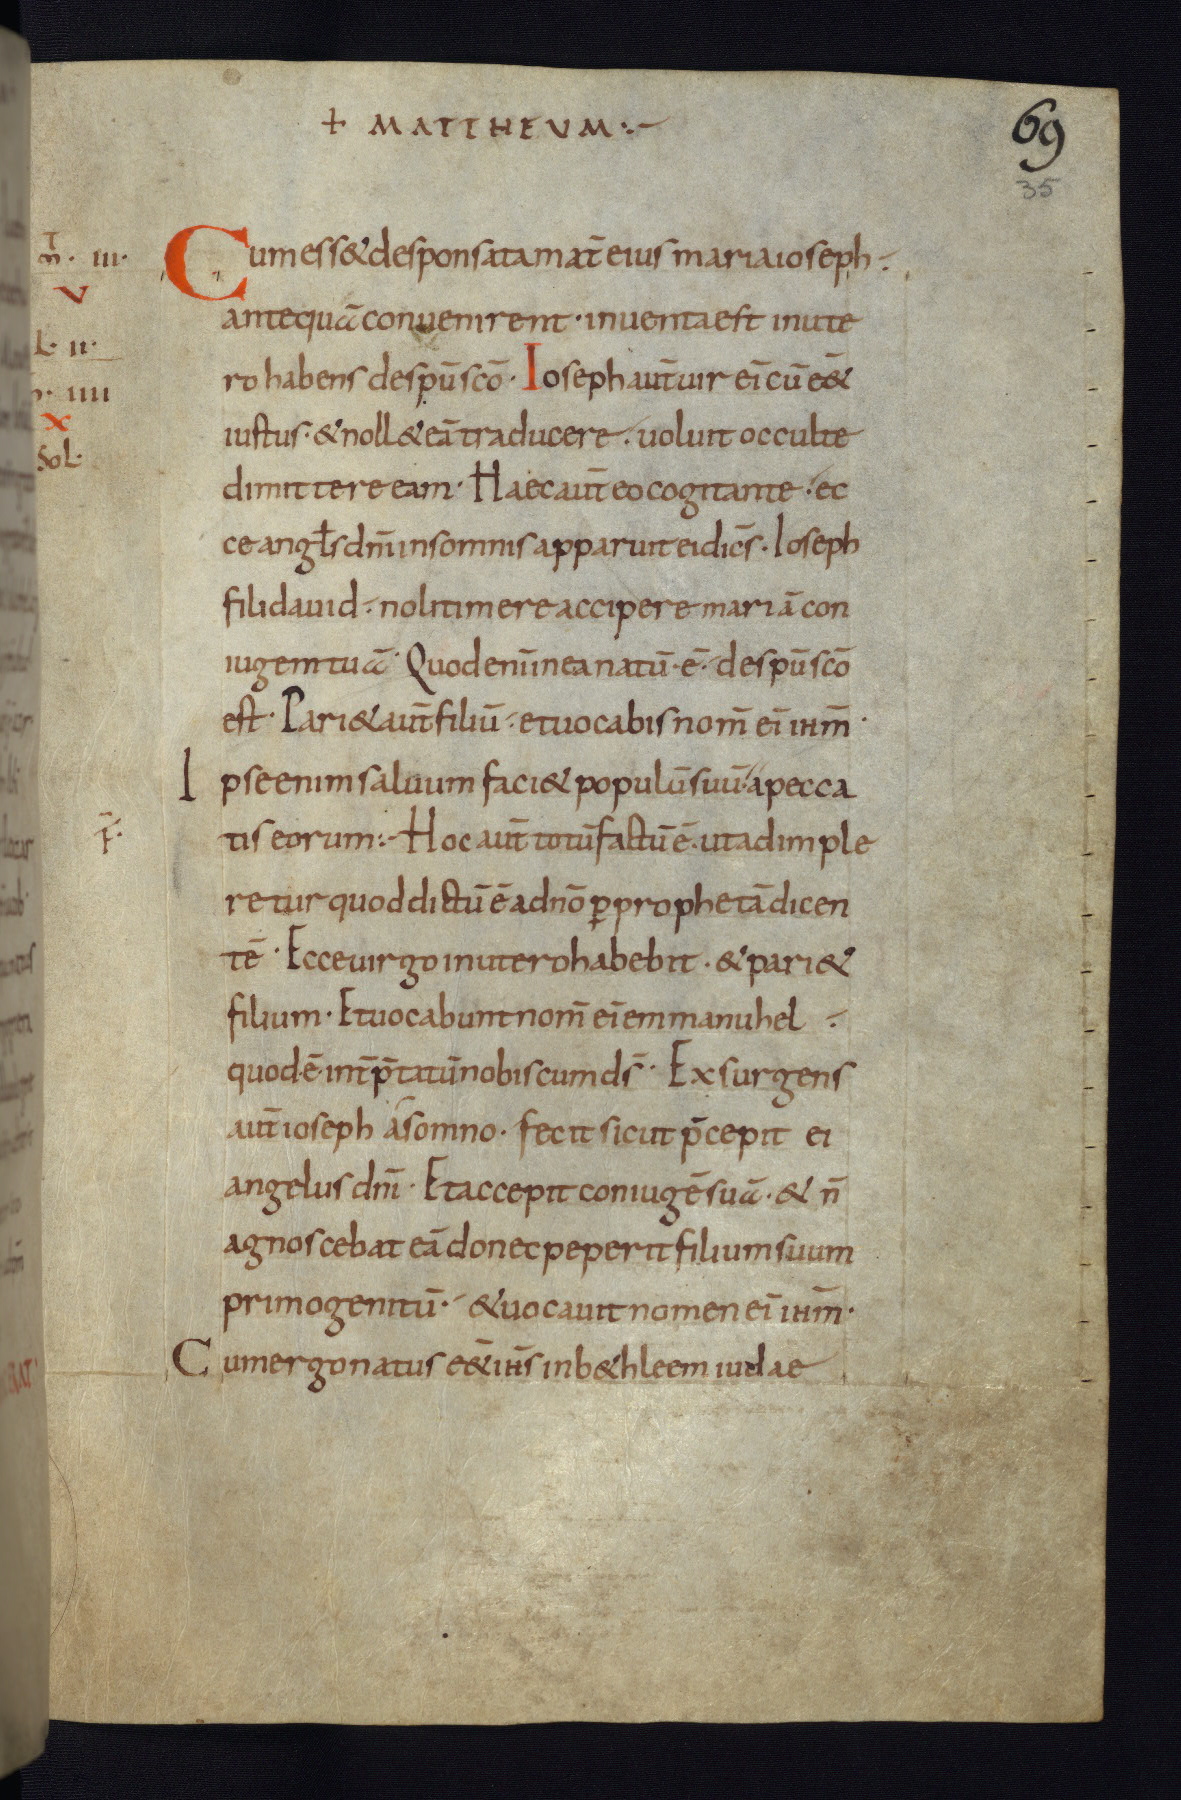 + MATTHEUM:-
69
35
m̅. III.
V
L. II.
IIII
X
Sol.
r̅.
Cum ess& desponsata mat̅ eius maria ioseph.
antequā convenirent · inventa est in ute
ro habens de sp̅u sc̅o · Ioseph aut̅ vir ei̅ cū e̅&
iustus · & noll& eā traducere · voluit occulte
dimittere eam · Haec aut̅ eo cogitante · ec
ce angl̅s dn̅i in somnis apparuit ei dic̅s · Ioseph
fili david · noli timere accipere mariā con
iugem tuā · Quod eni̅ in ea natū · ē · de sp̅u sc̅o
est · Pari& aut̅ filiū · et vocabis nom̅ ei̅ ih̅m ·
Ipse enim salvum faci& populū suū · a pecca
tis eorum :- Hoc aut̅ totū factū ē · ut adimple
retur quod dictū ē a dn̅o ꝑ prophetā dicen
tē · Ecce virgo in utero habebit · & pari&
filium · Et vocabunt nom̅ ei̅ emmanuhel
quod ē int̅p̅tatū nobiscum ds̅ · Exsurgens
aut̅ ioseph a somno · fecit sicut p̅cepit ei
angelus dn̅i · Et accepit coniugē suā · & n̅
agnoscebat eā donec peperit filium suum
primogenitū · & vocavit nomen ei̅ ih̅m ·
Cum ergo natus e̅& ih̅s in b&hleem iudae